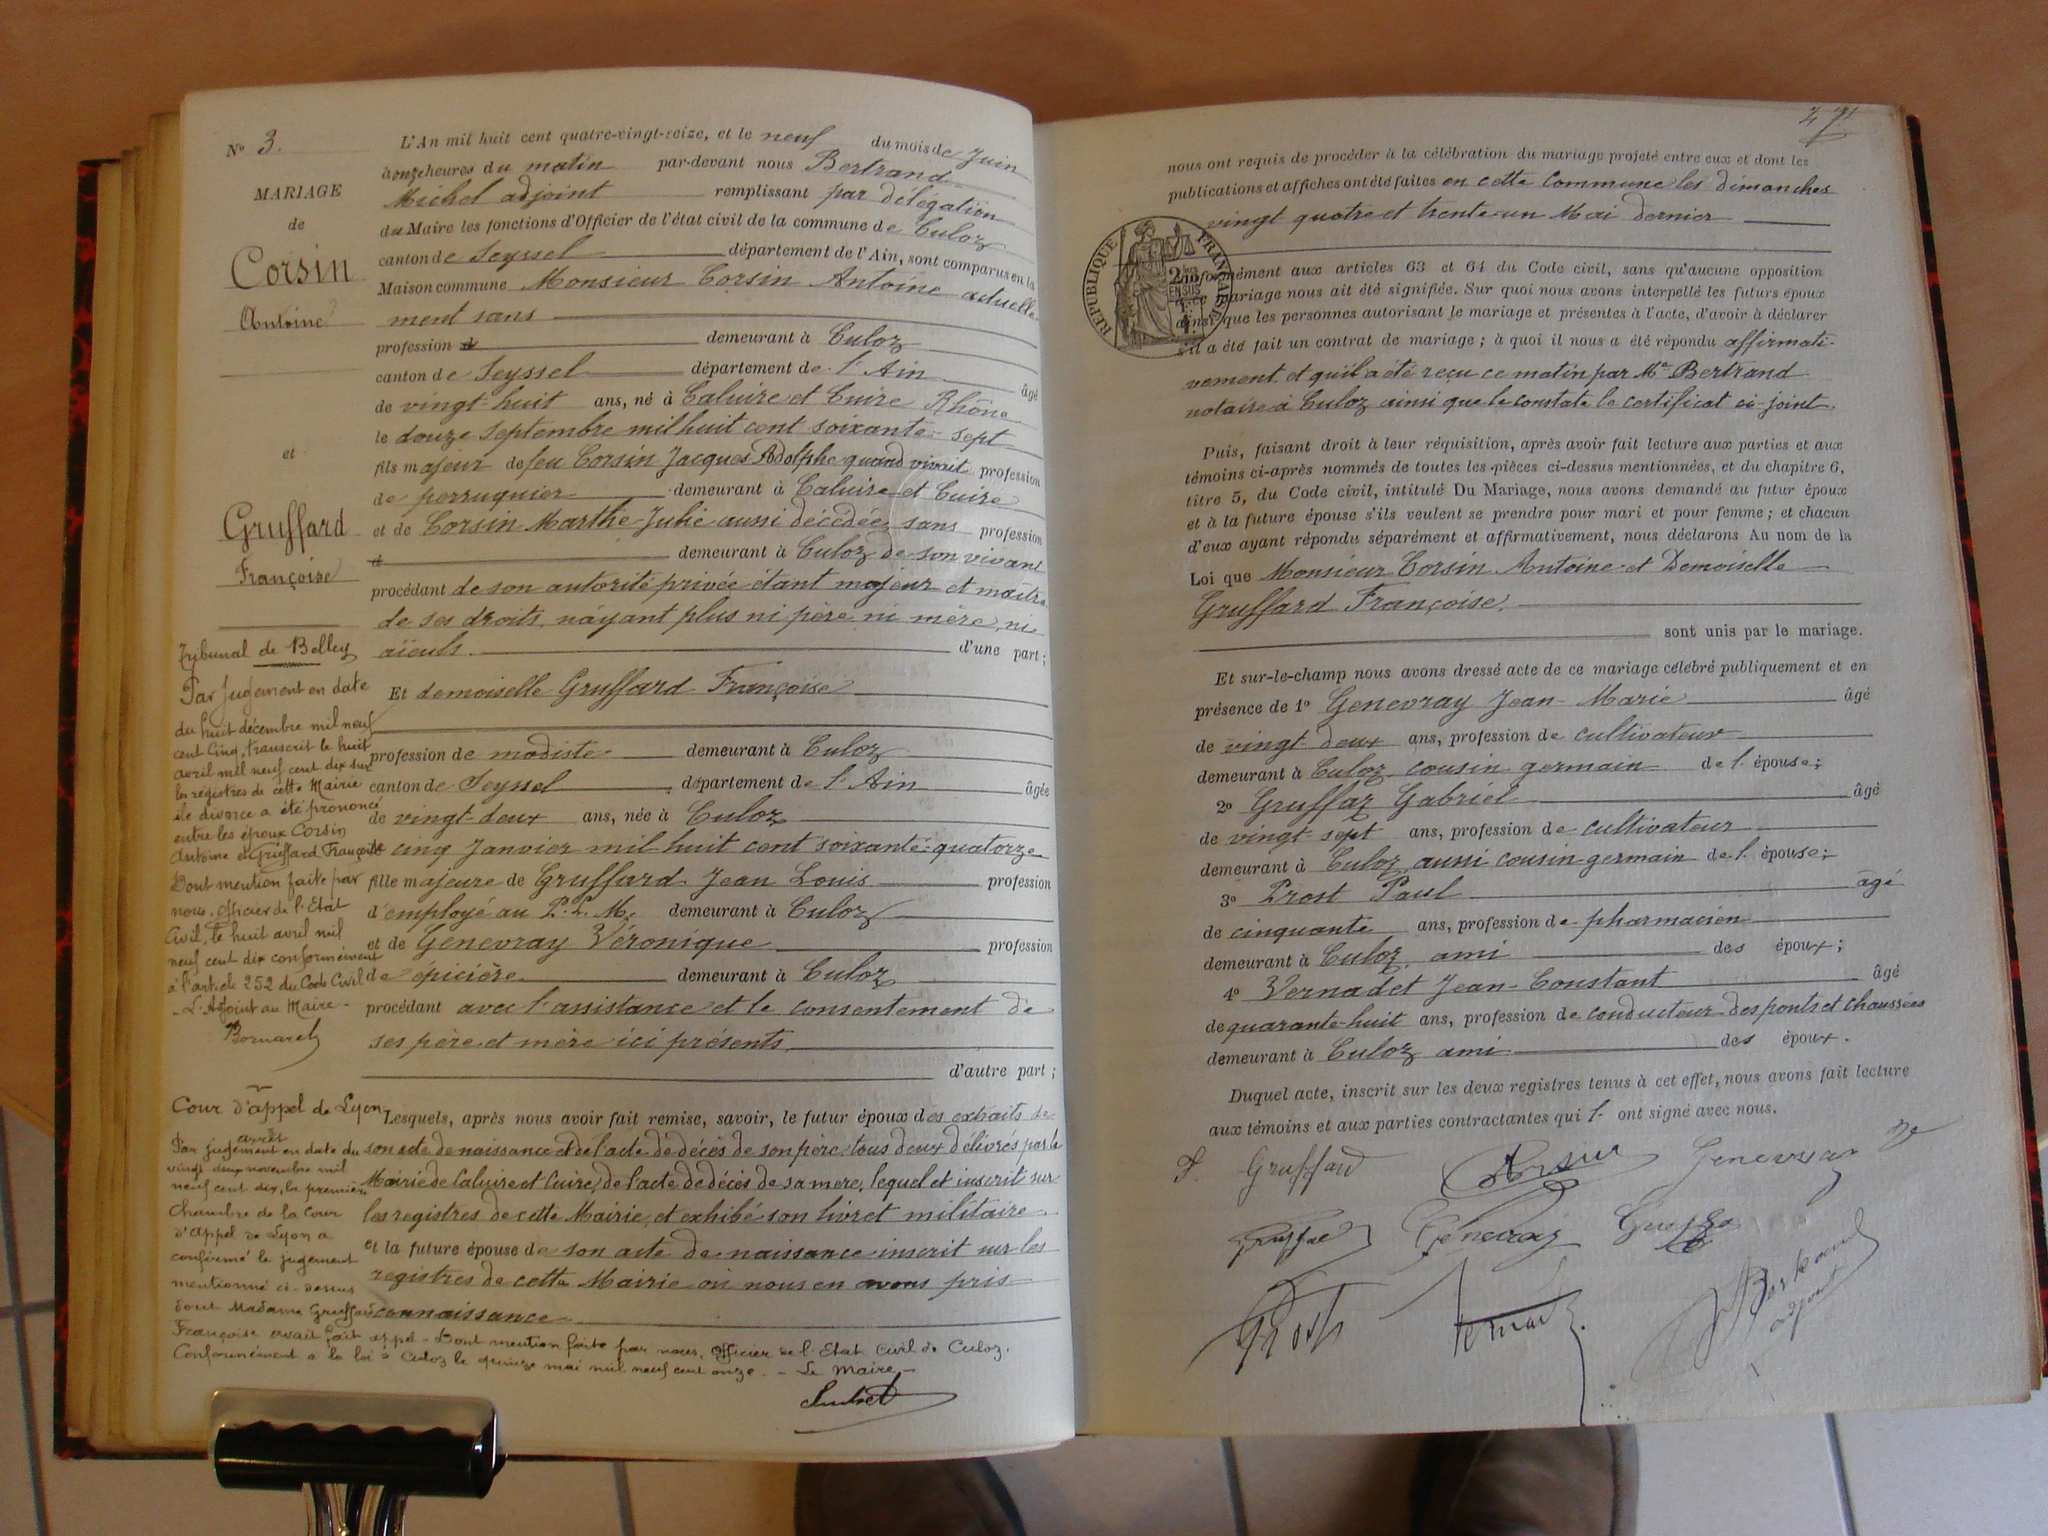 Nº 3.
MARIAGE
de
Corsin
Antoine
et
Gruffard
Françoise
Tribunal de Belley
Par Jugement en date
du huit décembre mil neuf
cent cinq, transcrit le huit
avril mil neuf cent dix sur
les registres de cette Mairie
le divorce a été prononcé
entre les époux Corsin
Antoine et Gruffard Françoise
Dont mention faite par
nous, officier de l'Etat
Civil, le huit avril mil
neuf cent dix conformément
à l'article 252 du Code Civil
- L'Adjoint au Maire -
Bornarel
Cour d'appel de Lyon
arrêt
Par jugement en date du
vingt deux novembre mil
neuf cent dix, la première
Chambre de la Cour
d'Appel de Lyon a
confirmé le jugement
mentionné ci-dessus
dont Madame Gruffard
Françoise avait fait appel - Dont mention faite par nous, officier de l'Etat Civil de Culoz.
Conformément a la loi à Culoz le quinze mai mil neuf cent onze. - Le Maire -
L'An mil huit cent quatre-vingt-seize, et le neuf du mois de Juin
à onze heures du matin par-devant nous Bertrand
Michel adjoint remplissant par délégation
du Maire les fonctions d'Officier de l'état civil de la commune de Culoz
canton de Seyssel département de l'Ain, sont comparus en la
Maison commune Monsieur Corsin Antoine actuelle
ment sans
profession d demeurant à Culoz
canton de Seyssel département de l'Ain âgé
de vingt-huit ans, né à Caluire et Cuire Rhône
le douze septembre mil huit cent soixante-sept
fils majeur de feu Corsin Jacques Adolphe quand vivait profession
de perruquier demeurant à Caluire et Cuire
et de Corsin Marthe-Julie aussi décédée, sans profession
d demeurant à Culoz de son vivant
procédant de son autorité privée étant majeur et maître
de ses droits, n'ayant plus ni père ni mère, ni
aïeuls. d'une part;
Et demoiselle Gruffard Françoise
profession de modiste demeurant à Culoz
canton de Seyssel département de l'Ain âgée
de vingt-deux ans, née à Culoz
le cinq Janvier mil huit cent soixante-quatorze
fille majeure de Gruffard Jean Louis profession
d'employé au P.L.M. demeurant à Culoz
et de Genevray Véronique profession
de épicière demeurant à Culoz
procédant avec l'assistance et le consentement de
ses père et mère ici présents
d'autre part;
Lesquels, après nous avoir fait remise, savoir, le futur époux des extraits de
son acte de naissance et de l'acte de décès de son père, tous deux délivrés par la
Mairie de Caluire et Cuire, de l'acte de décès de sa mère, lequel est inscrit sur
les registres de cette Mairie, et exhibé son livret militaire
et la future épouse de son acte de naissance inscrit sur les
registres de cette Mairie où nous en avons pris
connaissance
nous ont requis de procéder à la célébration du mariage projeté entre eux et dont les
publications et affiches ont été faites en cette commune les dimanches
vingt quatre et trente-un Mai dernier
RÉPUBLIQUE FRANÇAISE
conformément aux articles 63 et 64 du Code civil, sans qu'aucune opposition
à ce mariage nous ait été signifiée. Sur quoi nous avons interpellé les futurs époux
ainsi que les personnes autorisant le mariage et présentes à l'acte, d'avoir à déclarer
s'il a été fait un contrat de mariage; à quoi il nous a été répondu affirmati-
vement et qu'il a été reçu ce matin par Me Bertrand
notaire à Culoz ainsi que le constate le certificat ci-joint.
Puis, faisant droit à leur réquisition, après avoir fait lecture aux parties et aux
témoins ci-après nommés de toutes les pièces ci-dessus mentionnées, et du chapitre 6,
titre 5, du Code civil, intitulé Du Mariage, nous avons demandé au futur époux
et à la future épouse s'ils veulent se prendre pour mari et pour femme; et chacun
d'eux ayant répondu séparément et affirmativement, nous déclarons Au nom de la
Loi que Monsieur Corsin Antoine et Demoiselle
Gruffard Françoise.
sont unis par le mariage.
Et sur-le-champ nous avons dressé acte de ce mariage célébré publiquement et en
présence de 1º Genevray Jean-Marie âgé
de vingt-deux ans, profession de cultivateur
demeurant à Culoz, cousin germain de l'épouse;
2º Gruffaz Gabriel âgé
de vingt sept ans, profession de cultivateur
demeurant à Culoz, aussi cousin germain de l'épouse;
3º Prost Paul âgé
de cinquante ans, profession de pharmacien
demeurant à Culoz, ami des époux;
4º Vernadet Jean-Constant âgé
de quarante-huit ans, profession de conducteur des ponts et chaussées
demeurant à Culoz ami des époux.
Duquel acte, inscrit sur les deux registres tenus à cet effet, nous avons fait lecture
aux témoins et aux parties contractantes qui l'ont signé avec nous.
F. Gruffard Corsin Genevray
Genevray
Prost
Bertrand
adjoint